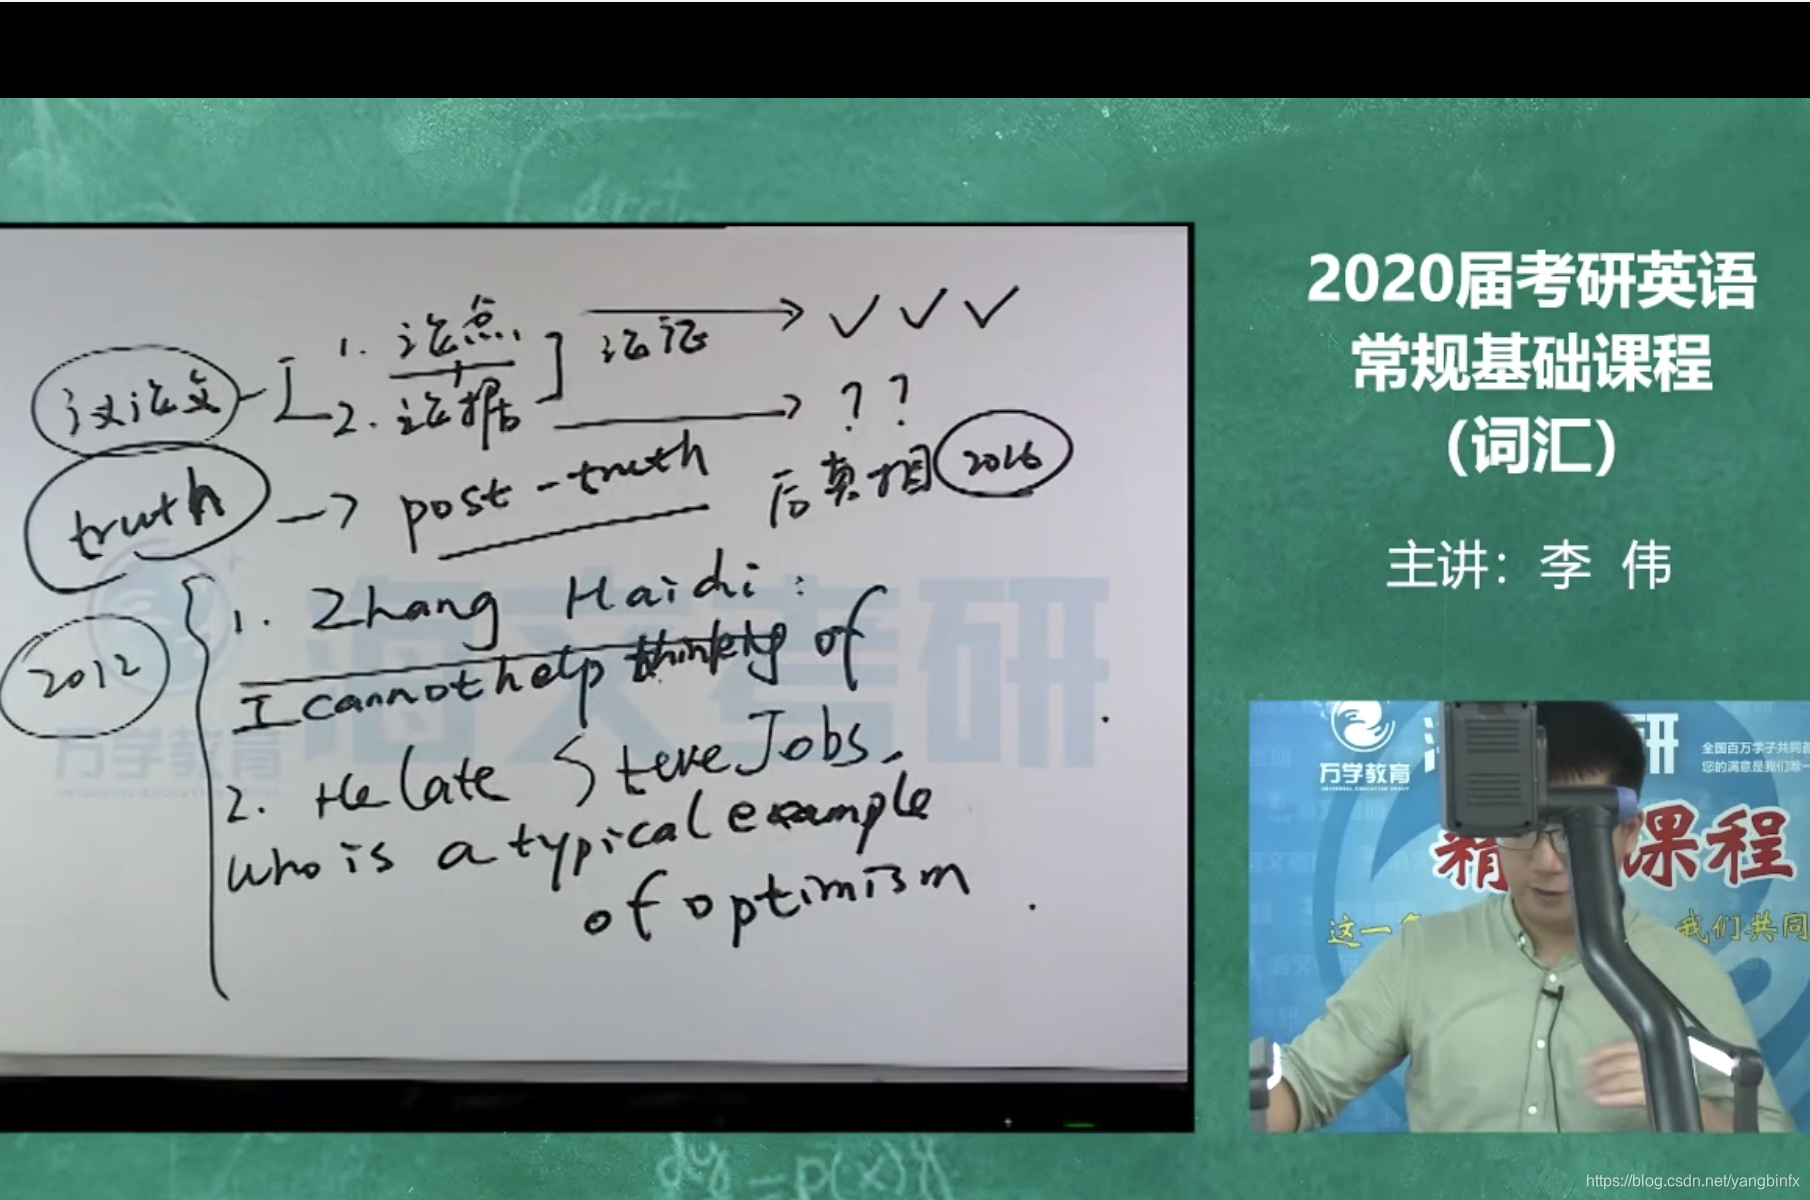 2020届考研英语
常规基础课程
(词汇)
主讲：李 伟
议论文
1. 论点
2. 论据
论证
? ?
truth → post-truth 后真相 2016
2012
1. Zhang Haidi:
I cannot help thinking of
2. the late Steve Jobs,
who is a typical example
of optimism.
海文考研
万学教育
万学教育
研
全国百万学子共同
您的满意是我们唯一
课程
这一
我们共同
https://blog.csdn.net/yangbinfx